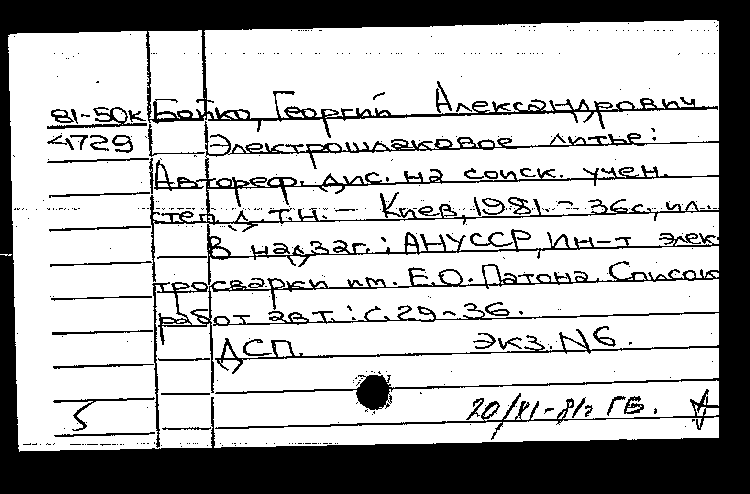 81-50к Бойко, Георгий Александрович
4729 Электрошлаковое литье:
Автореф. дис. на соиск. учен.
степ. д.т.н. - Киев, 1981. - 36с., ил.
В надзаг.: АНУССР, Ин-т элек-
тросварки им. Е.О. Патона. Список
работ авт.: с. 29-36.
ДСП. экз. N6.
5 20/XI-81г ГБ.